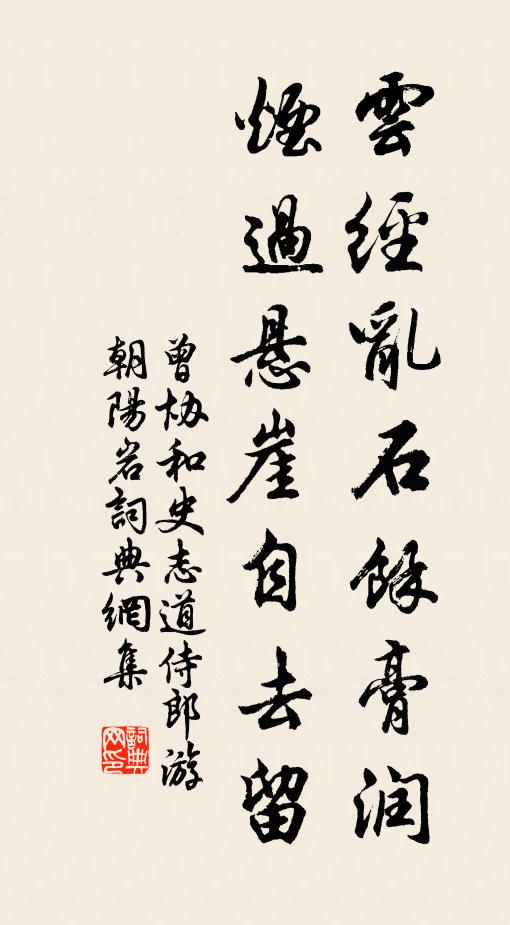 雲經亂石餘膏潤
煙過懸崖自去留
曾协和史志道侍郎游
朝陽岩詞典網集
詞典
网印